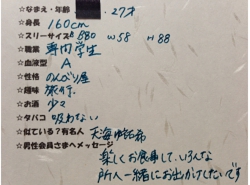 ☆なまえ・年齢 27才
☆身長 160cm
☆スリーサイズ B80 W58 H88
☆職業 専門学生
☆血液型 A
☆性格 のんびり屋
☆趣味 旅行。
☆お酒 少々
☆タバコ 吸わない
☆似ている?有名人 天海ゆ希
☆男性会員さまへメッセージ
楽しくお食事して、いろんな
所へ一緒にお出かけしたいです